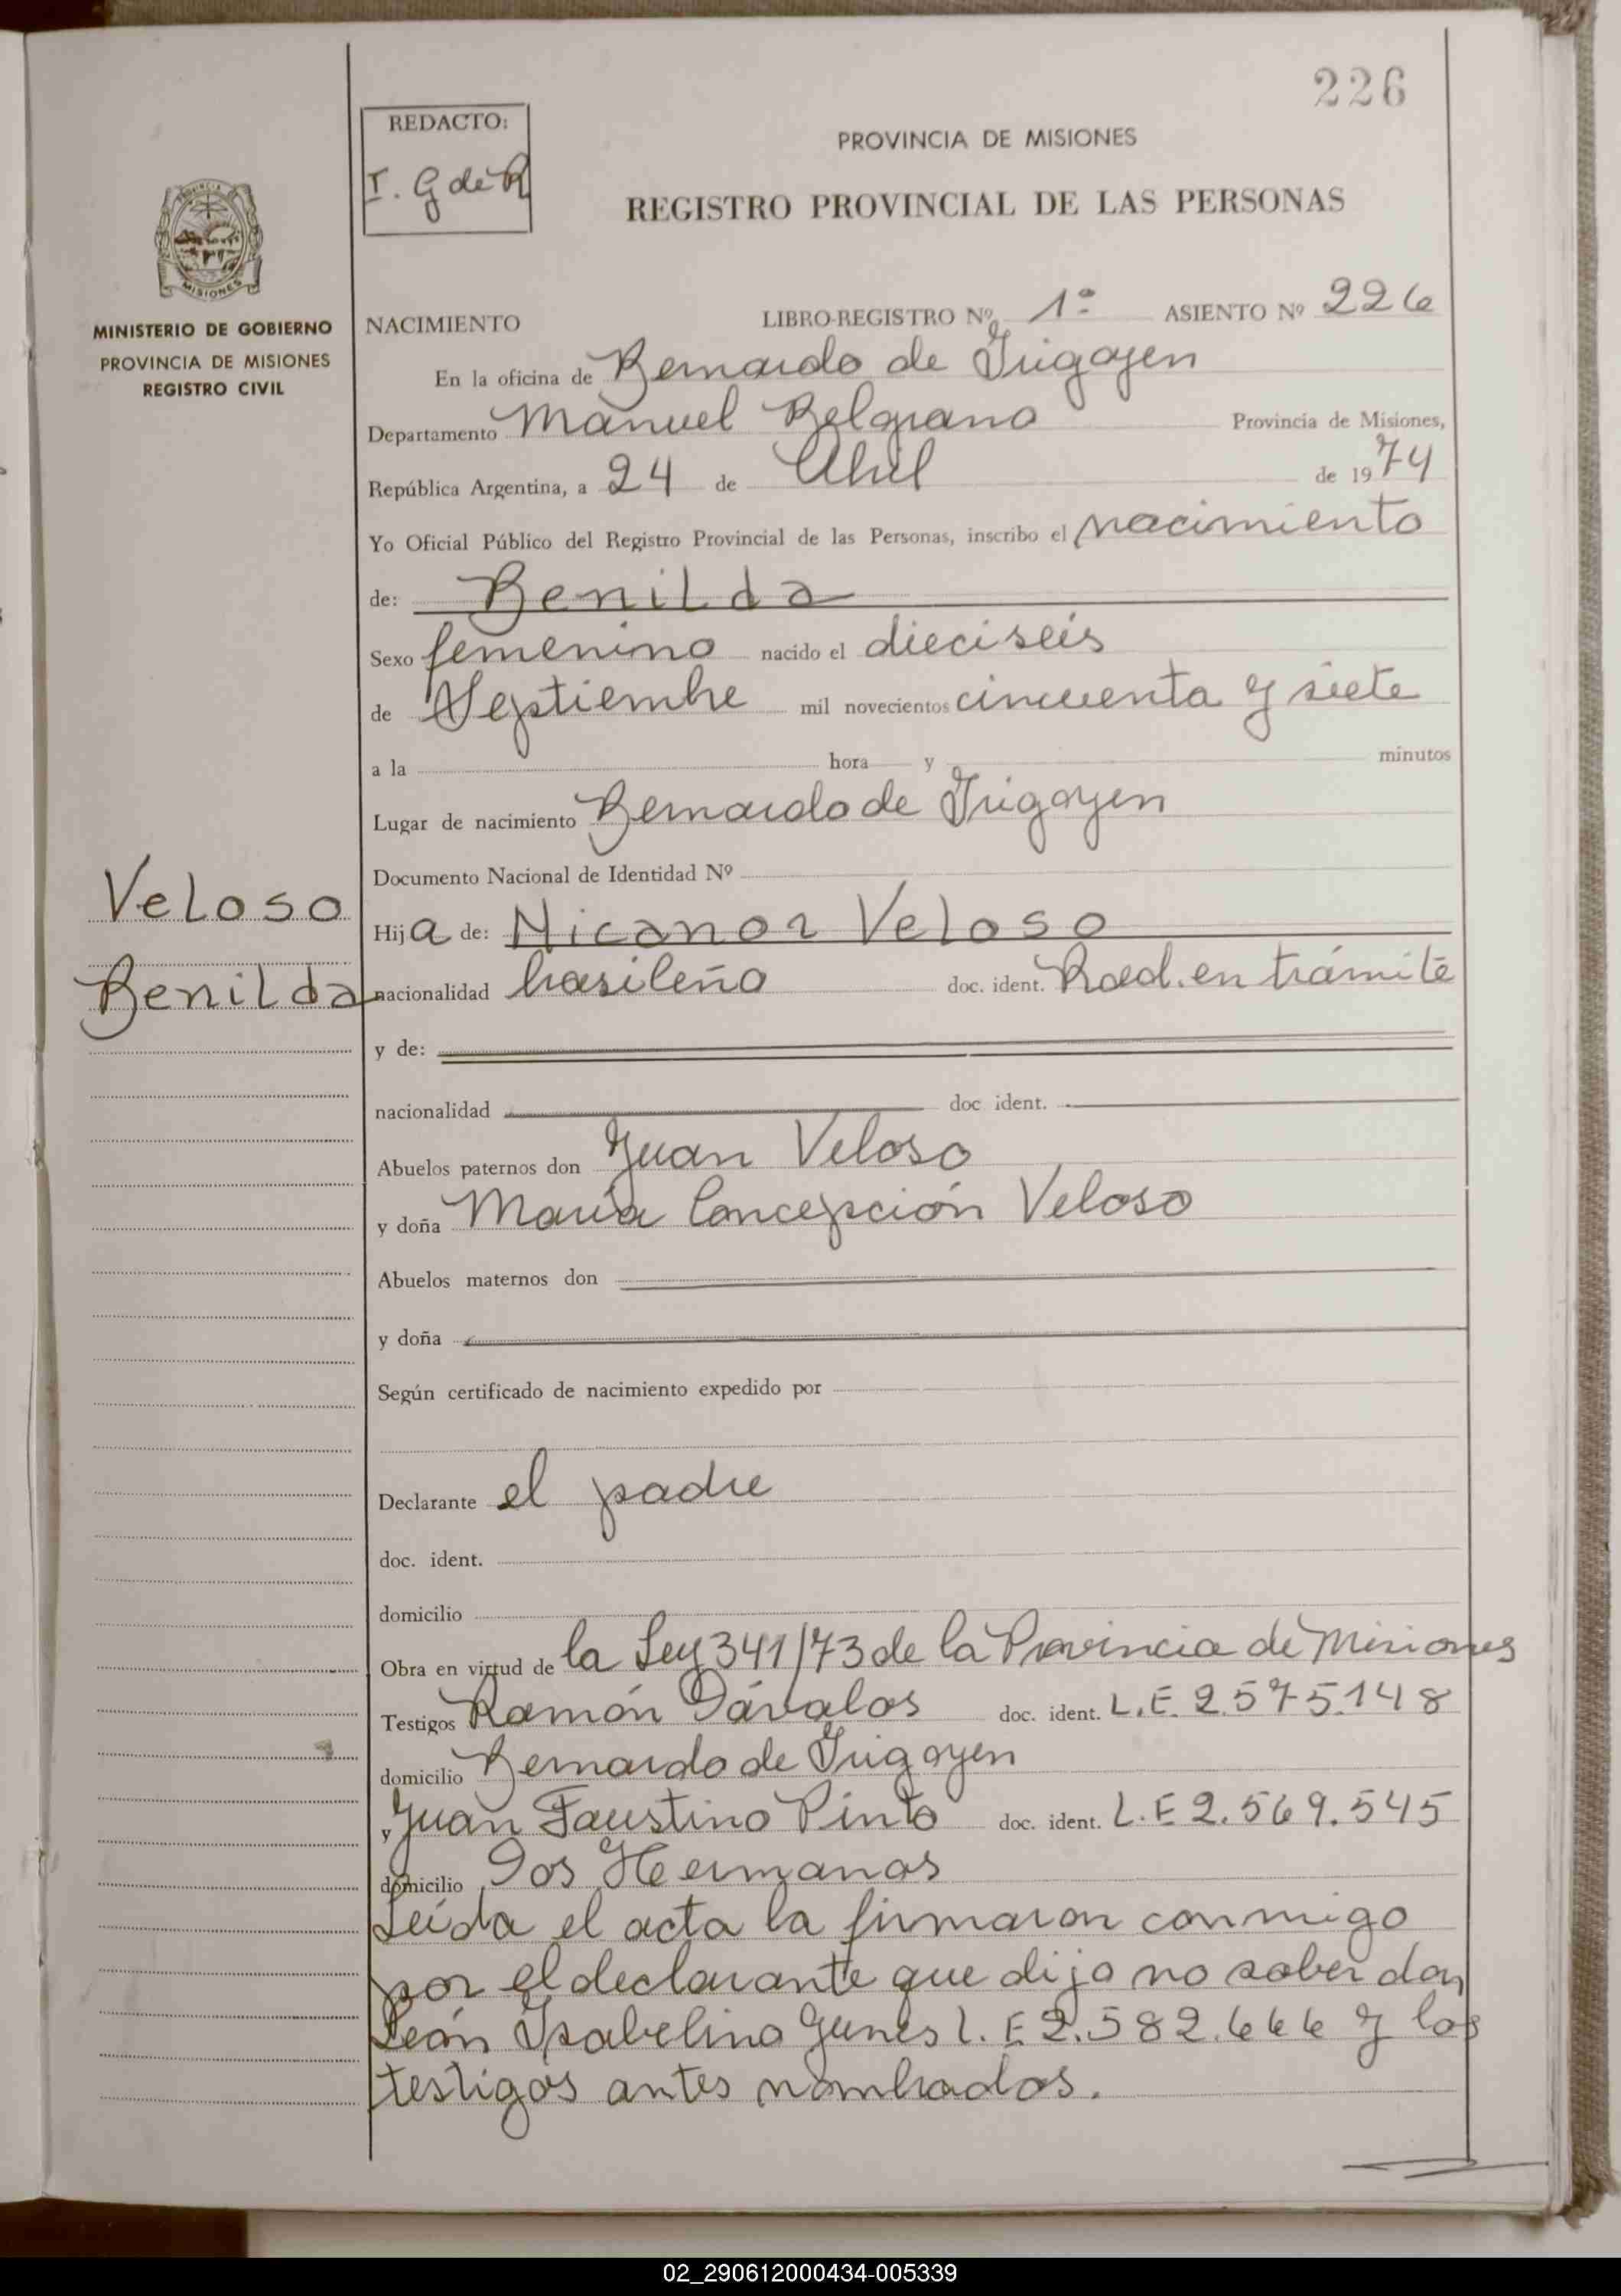 226
REDACTO:
I. G de R
PROVINCIA DE MISIONES
REGISTRO PROVINCIAL DE LAS PERSONAS
PROVINCIA
MISIONES
MINISTERIO DE GOBIERNO
PROVINCIA DE MISIONES
REGISTRO CIVIL
NACIMIENTO LIBRO-REGISTRO Nº 1º ASIENTO Nº 226
En la oficina de Bernardo de Irigoyen
Departamento Manuel Belgrano Provincia de Misiones,
República Argentina, a 24 de Abril de 1974
Yo Oficial Público del Registro Provincial de las Personas, inscribo el nacimiento
de: Benilda
Sexo femenino nacido el dieciséis
de Septiembre mil novecientos cincuenta y siete
a la hora y minutos
Lugar de nacimiento Bernardo de Irigoyen
Documento Nacional de Identidad Nº
Veloso
Hija de: Nicanor Veloso
Benilda
nacionalidad brasileño doc. ident. Rad. en trámite
y de:
nacionalidad doc ident.
Abuelos paternos don Juan Veloso
y doña María Concepción Veloso
Abuelos maternos don
y doña
Según certificado de nacimiento expedido por
Declarante el padre
doc. ident.
domicilio
Obra en virtud de la Ley 341/73 de la Provincia de Misiones
Testigos Ramón Dávalos doc. ident. L.E. 2.575.148
domicilio Bernardo de Irigoyen
y Juan Faustino Pinto doc. ident. L.E 2.569.545
domicilio Dos Hermanas
Leída el acta la firmaron conmigo
por el declarante que dijo no saber don
León Isabelino Yunes L.E 2.582.666 y los
testigos antes nombrados.
02_290612000434-005339